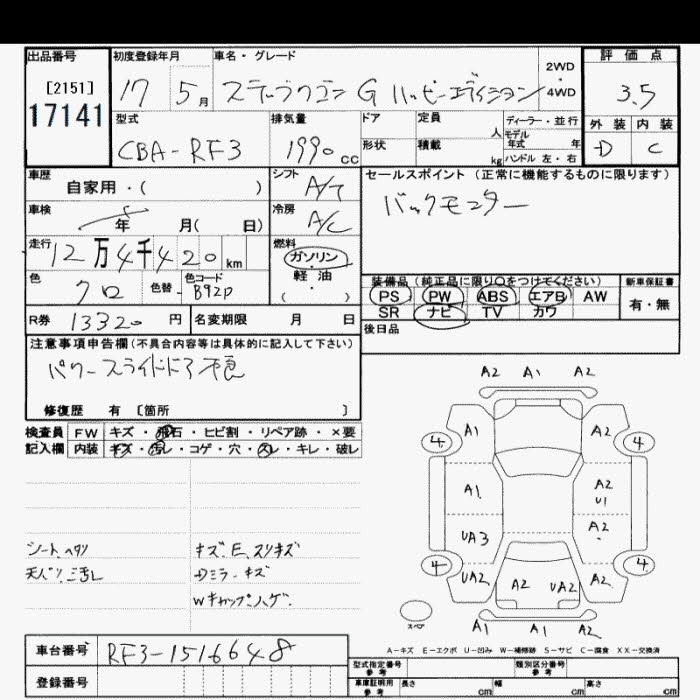 出品番号 初度登録年月 車名・グレード 評価点
[2151]
17141
17 5月 ステップワゴン G ハッピーエディション 2WD・4WD 3.5
型式 排気量 ドア 定員 人 ディーラー・並行 外装 内装
CBA-RF3 1990cc 形状 積載 kg モデル年式 年 ハンドル 左・右 D C
車歴 シフト セールスポイント (正常に機能するものに限ります)
自家用・( ) A/T
バックモニター
車検 年 月( 日) 冷房 A/C
走行 12万4千420km 燃料 ガソリン・軽油・( )
色 クロ 色替 色コード B92P
装備品 (純正品に限り○をつけてください) 新車保証書
PS PW ABS エアB AW 有・無
SR ナビ TV カワ
R券 13320円 名変期限 月 日 後日品
注意事項申告欄(不具合内容等は具体的に記入して下さい)
パワースライドドア
修復歴 有 [箇所 ]
検査員 FW キズ・飛石・ヒビ割・リペア跡・×要
記入欄 内装 キズ・汚レ・コゲ・穴・スレ・キレ・破レ
A2 A1 A2
4 A1 A2 4
A1 A2 U1
UA3 A2
4 UA2 A2 UA2 A2 4
スペア A1 A1 A2
シートヘタリ キズ.E.スリキズ
天バリ.ミ汚レ Dミラーキズ
Wキャップハゲ
A-キズ E-エクボ U-凹み W-補修跡 S-サビ C-腐食 XX-交換済
車台番号 RF3-1516648
登録番号
型式指定番号 参考 類別区分番号 参考
車庫証明用 参考 長さ cm 幅 cm 高さ cm